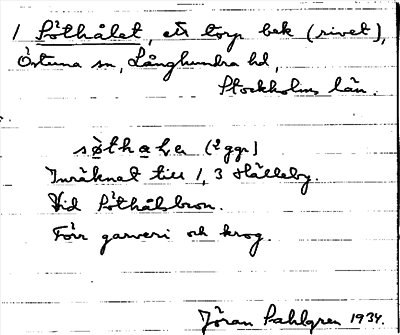 1 Söthålet, ett torp bek (rivet),
Östuna sn, Långhundra hd,
Stockholms län.
søthalet (2 ggr)
Inräknat till 1, 3 Hälleby.
Vid Söthålsbron.
Förr garveri och krog.
Jöran Sahlgren 1934.